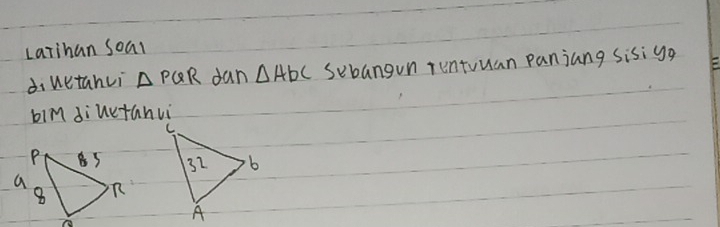 Latihan Soal
diketahui Δ PQR dan ΔAbC Sebangun tentukan Panjang sisi yg
blM diketahui
C
P 5
32 b
a 8 R
Q A